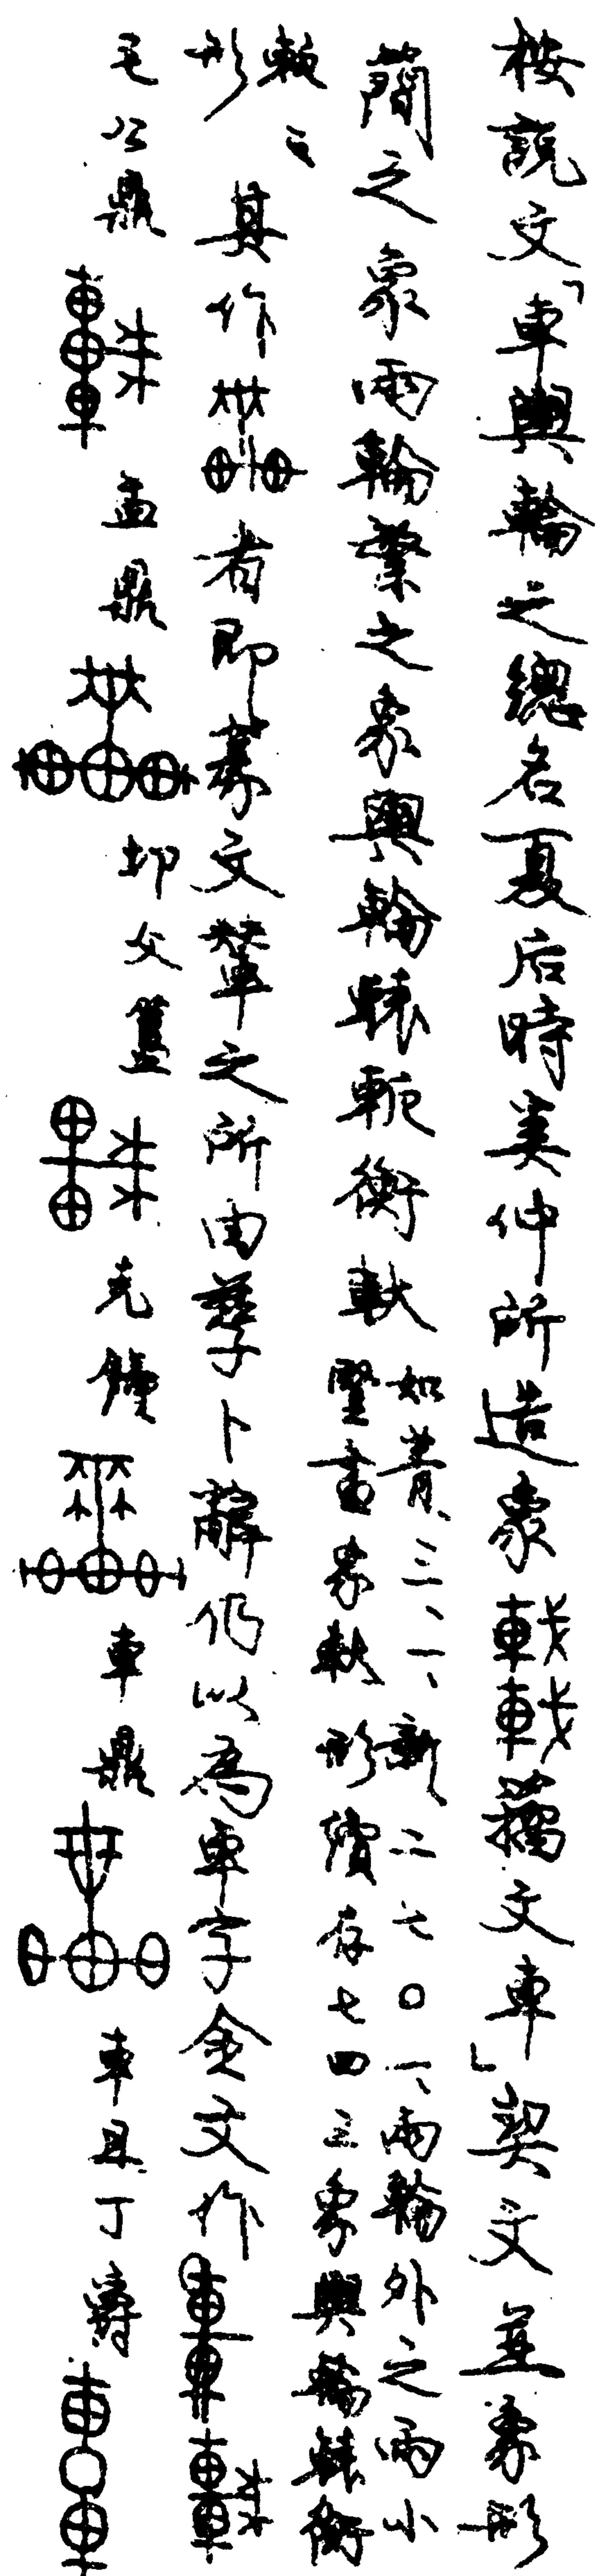 桉說文「車輿輪之總名夏后時奚仲所造象 𨏖籀文車」契文並象形
簡之象兩輪繁之象輿輪轅軛衡軑如菁、三、一、新二七〇一、兩輪外之兩小豎畫象軑形續存七四三象輿輪轅衡
軛之形其作 者即篆文輦之所由孳卜辭仍以為車字金文作
毛公鼎 盂鼎 卲父簋 克鐘 車鼎 車且丁爵